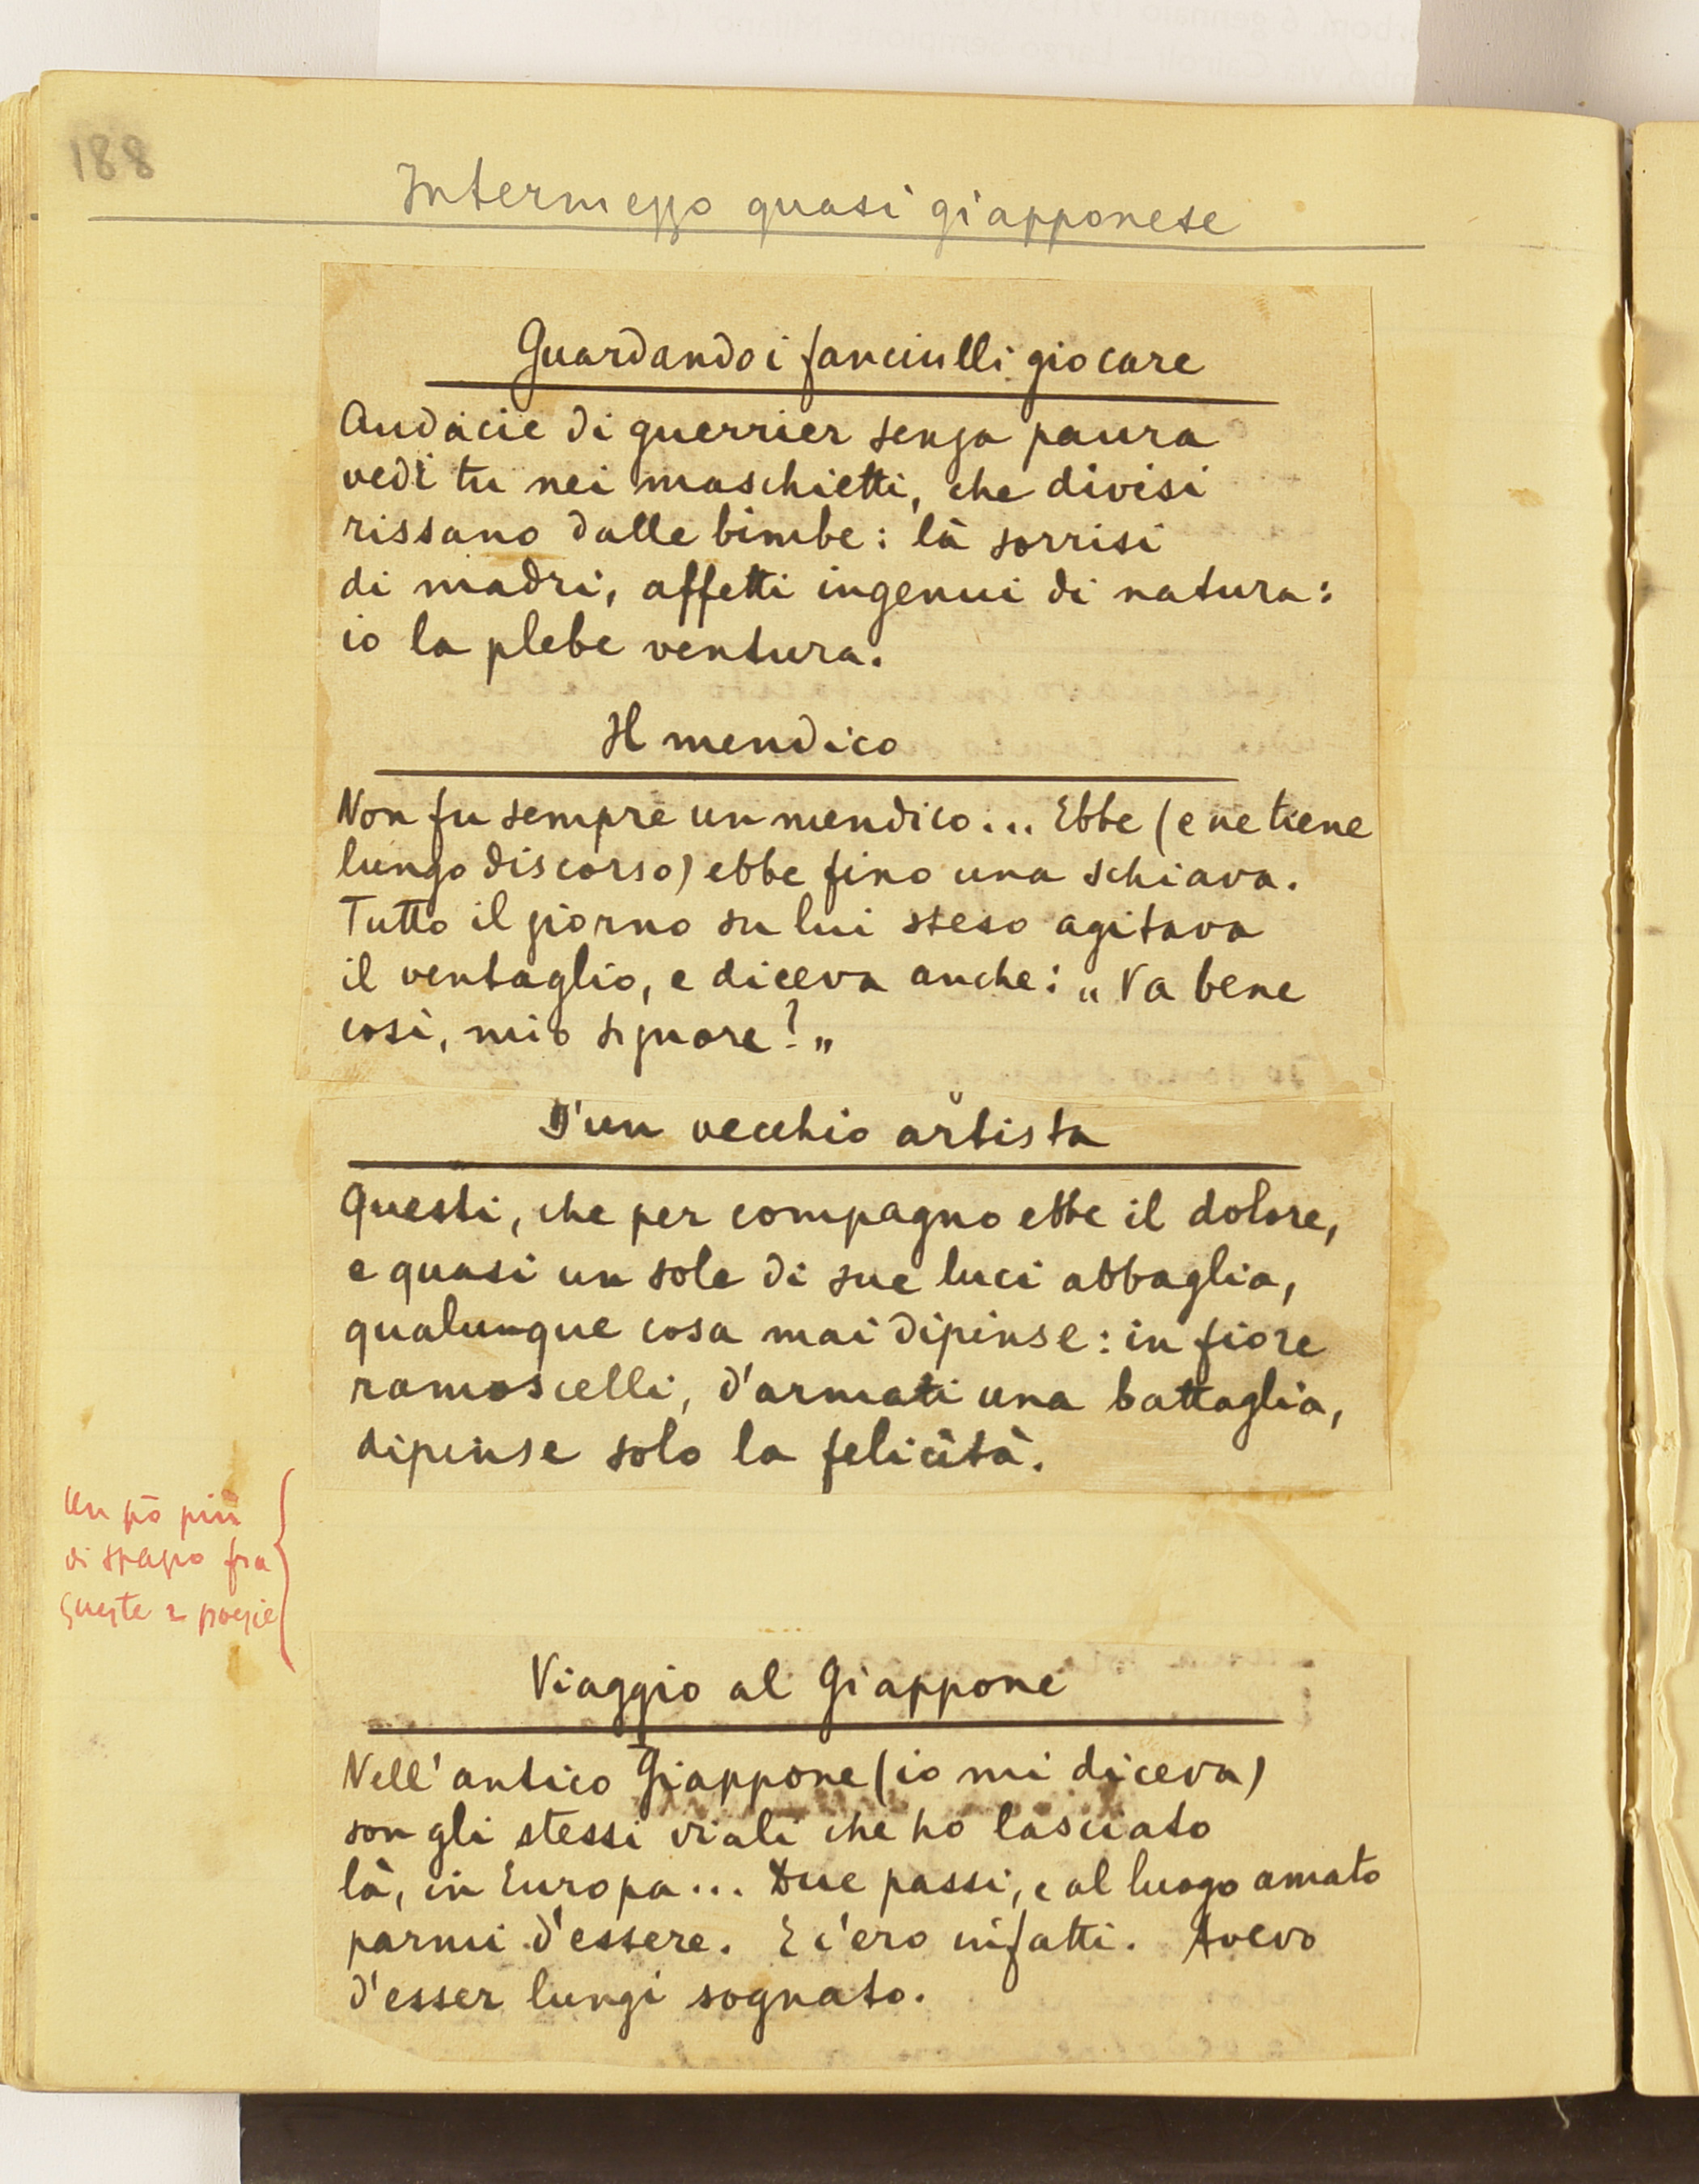 188
Intermezzo quasi giapponese
Guardando i fanciulli giocare
Audacie di guerrier senza paura
vedi tu nei maschietti, che divisi
rissano dalle bimbe: là sorrisi
di madri, affetti ingenui di natura:
io la plebe ventura.
Il mendico
Non fu sempre un mendico... Ebbe (e ne tiene
lungo discorso) ebbe fino una schiava.
Tutto il giorno su lui steso agitava
il ventaglio, e diceva anche: „Va bene
così, mio signore?„
D'un vecchio artista
Questi, che per compagno ebbe il dolore,
e quasi un sole di sue luci abbaglia,
qualunque cosa mai dipinse: in fiore
ramoscelli, d'armati una battaglia,
dipinse solo la felicità.
Un pò più
di spazio fra
queste 2 poesie
Viaggio al Giappone
Nell'antico Giappone (io mi diceva)
son gli stessi viali che ho lasciato
là, in Europa... Due passi, e al luogo amato
parmi d'essere. E c'ero infatti. Avevo
d'esser lungi sognato.